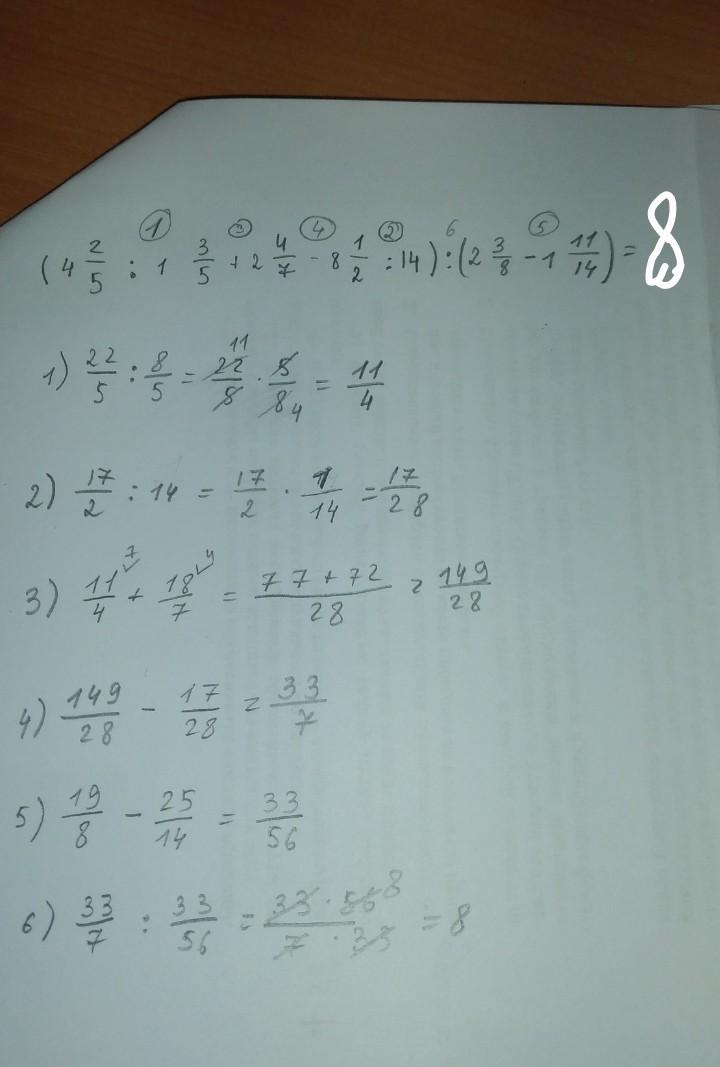 ① ③ ④ ② 6 ⑤
(4 2/5 : 1 3/5 + 2 4/7 - 8 1/2 : 14) : (2 3/8 - 1 11/14) = 8
1) 22/5 : 8/5 = 22/5 · 5/8 = 11/4
2) 17/2 : 14 = 17/2 · 1/14 = 17/28
3) 11/4 + 18/7 = 77+72/28 = 149/28
4) 149/28 - 17/28 = 33/7
5) 19/8 - 25/14 = 33/56
6) 33/7 : 33/56 = 33·56/7·33 = 8